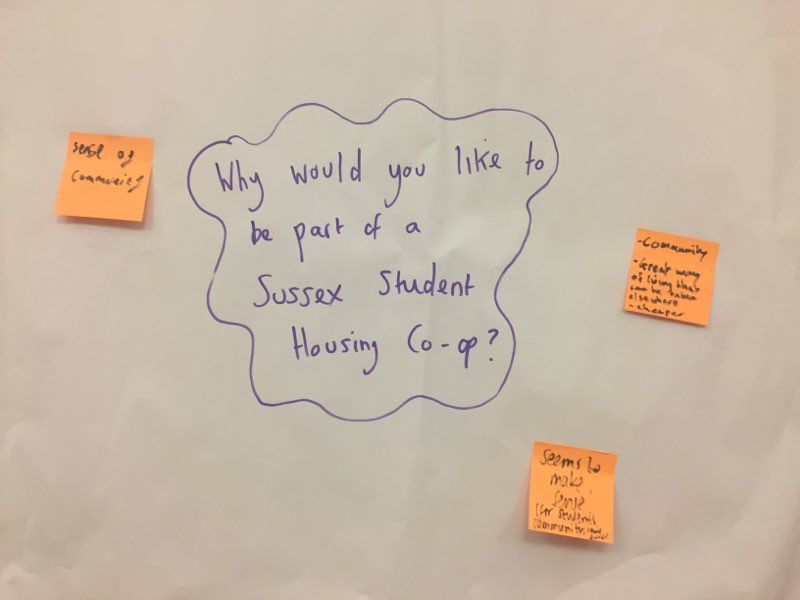 sense of
community
Why would you like to
be part of a
Sussex Student
Housing Co-op?
-Community
-Great way
of living that
can be taken
elsewhere
-cheaper
Seems to
make
sense
(for students
community,